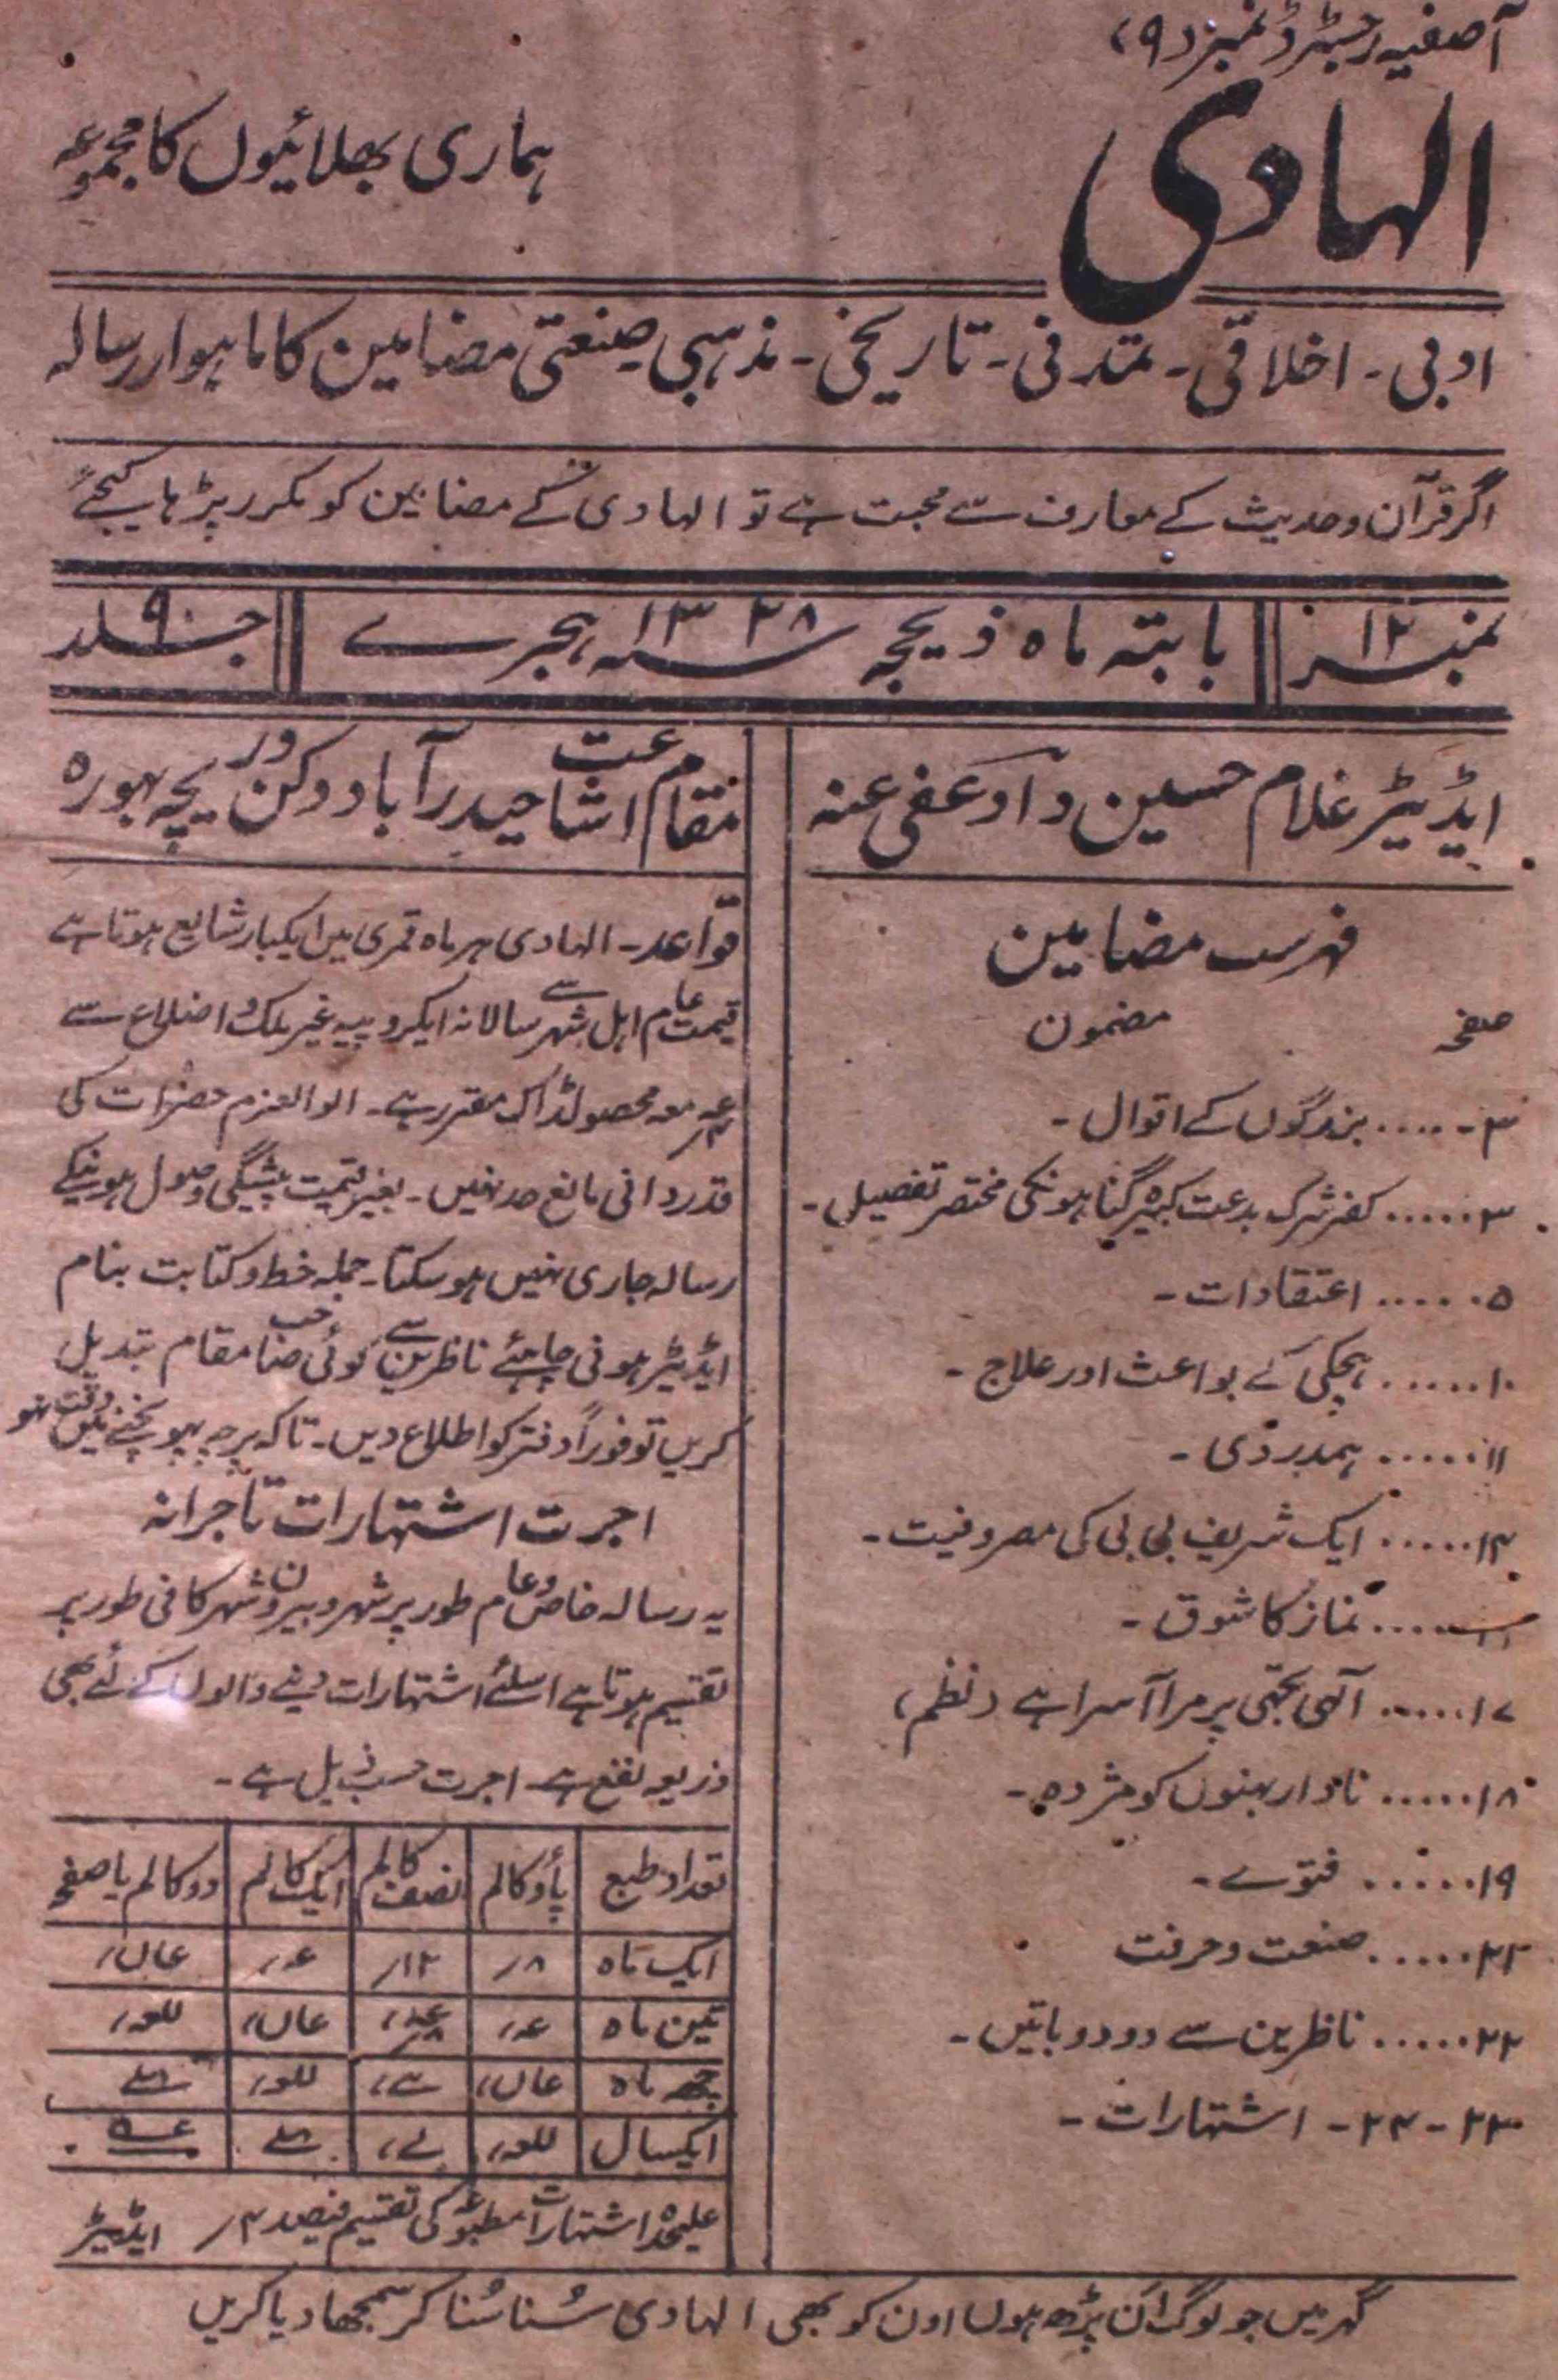 آصفیہ رجسٹرڈ نمبر (۹)
الہادی
ہماری بھلائیوں کا مجموعہ
ادبی - اخلاقی - تمدنی - تاریخی - مذہبی صنعتی مضامین کا ماہوار رسالہ
اگر قرآن و حدیث کے معارف سے محبت ہے تو الہادی کے مضامین کو مکرر پڑہا کیجئے
نمبر ۱۲
بابتہ ماہ ذیحجہ سنہ ۱۳۳۸ ہجری
جلد ۹
ایڈیٹر غلام حسین داؤد عفی عنہ
فہرست مضامین
صفحہ مضمون
۳ ..... بزرگوں کے اقوال -
۳ ..... کفر شرک بدعت کبیرہ گناہونکی مختصر تفصیل -
۵ ..... اعتقادات -
۱۰ ..... ہچکی کے بواعث اور علاج -
۱۱ ..... ہمدردی -
۱۴ ..... ایک شریف بی بی کی مصروفیت -
..... نماز کا شوق -
۱۷ ..... آلہی تجھی پر مرا آسرا ہے (نظم)
۱۸ ..... نادار بہنوں کو مژدہ -
۱۹ ..... فتوے -
۲۲ ..... صنعت و حرفت
۲۲ ..... ناظرین سے دو دو باتیں -
۲۳ - ۲۴ - اشتہارات -
مقام اشاعت حیدرآباد دکن دریچہ بہورہ
قواعد - الہادی ہر ماہ قمری میں ایکبار شایع ہوتا ہے
قیمت عام اہل شہر سے سالانہ ایکروپیہ غیر ملک و اضلاع سے
معہ محصولڈاک مقرر ہے - الوالعزم حضرات کی
قدردانی مانع حد نہیں - بغیر قیمت پیشگی وصول ہونیکے
رسالہ جاری نہیں ہو سکتا - جملہ خط و کتابت بنام
ایڈیٹر ہونی چاہئے ناظرین سے کوئی صاحب مقام تبدیل
کریں تو فوراً دفتر کو اطلاع دیں - تاکہ پرچہ پہونچنے میں دقت نہو
اجرت اشتہارات تاجرانہ
یہ رسالہ خاص و عام طور پر شہر و بیرون شہر کافی طور پر
تقسیم ہوتا ہے اسلئے اشتہارات دینے والوں کے لئے بھی
ذریعہ نفع ہے - اجرت حسب ذیل ہے -
تعداد طبع پاؤ کالم نصف کالم ایک کالم دو کالم یا صفحہ
ایک ماہ ۸/ ۱۲/
تین ماہ
چھ ماہ
ایکسال
علیحدہ اشتہارات مطبوعہ کی تقسیم فیصد ۴/ ایڈیٹر
گہر میں جو لوگ ان پڑھ ہوں اون کو بھی الہادی سُنا سُنا کر سمجھا دیا کریں